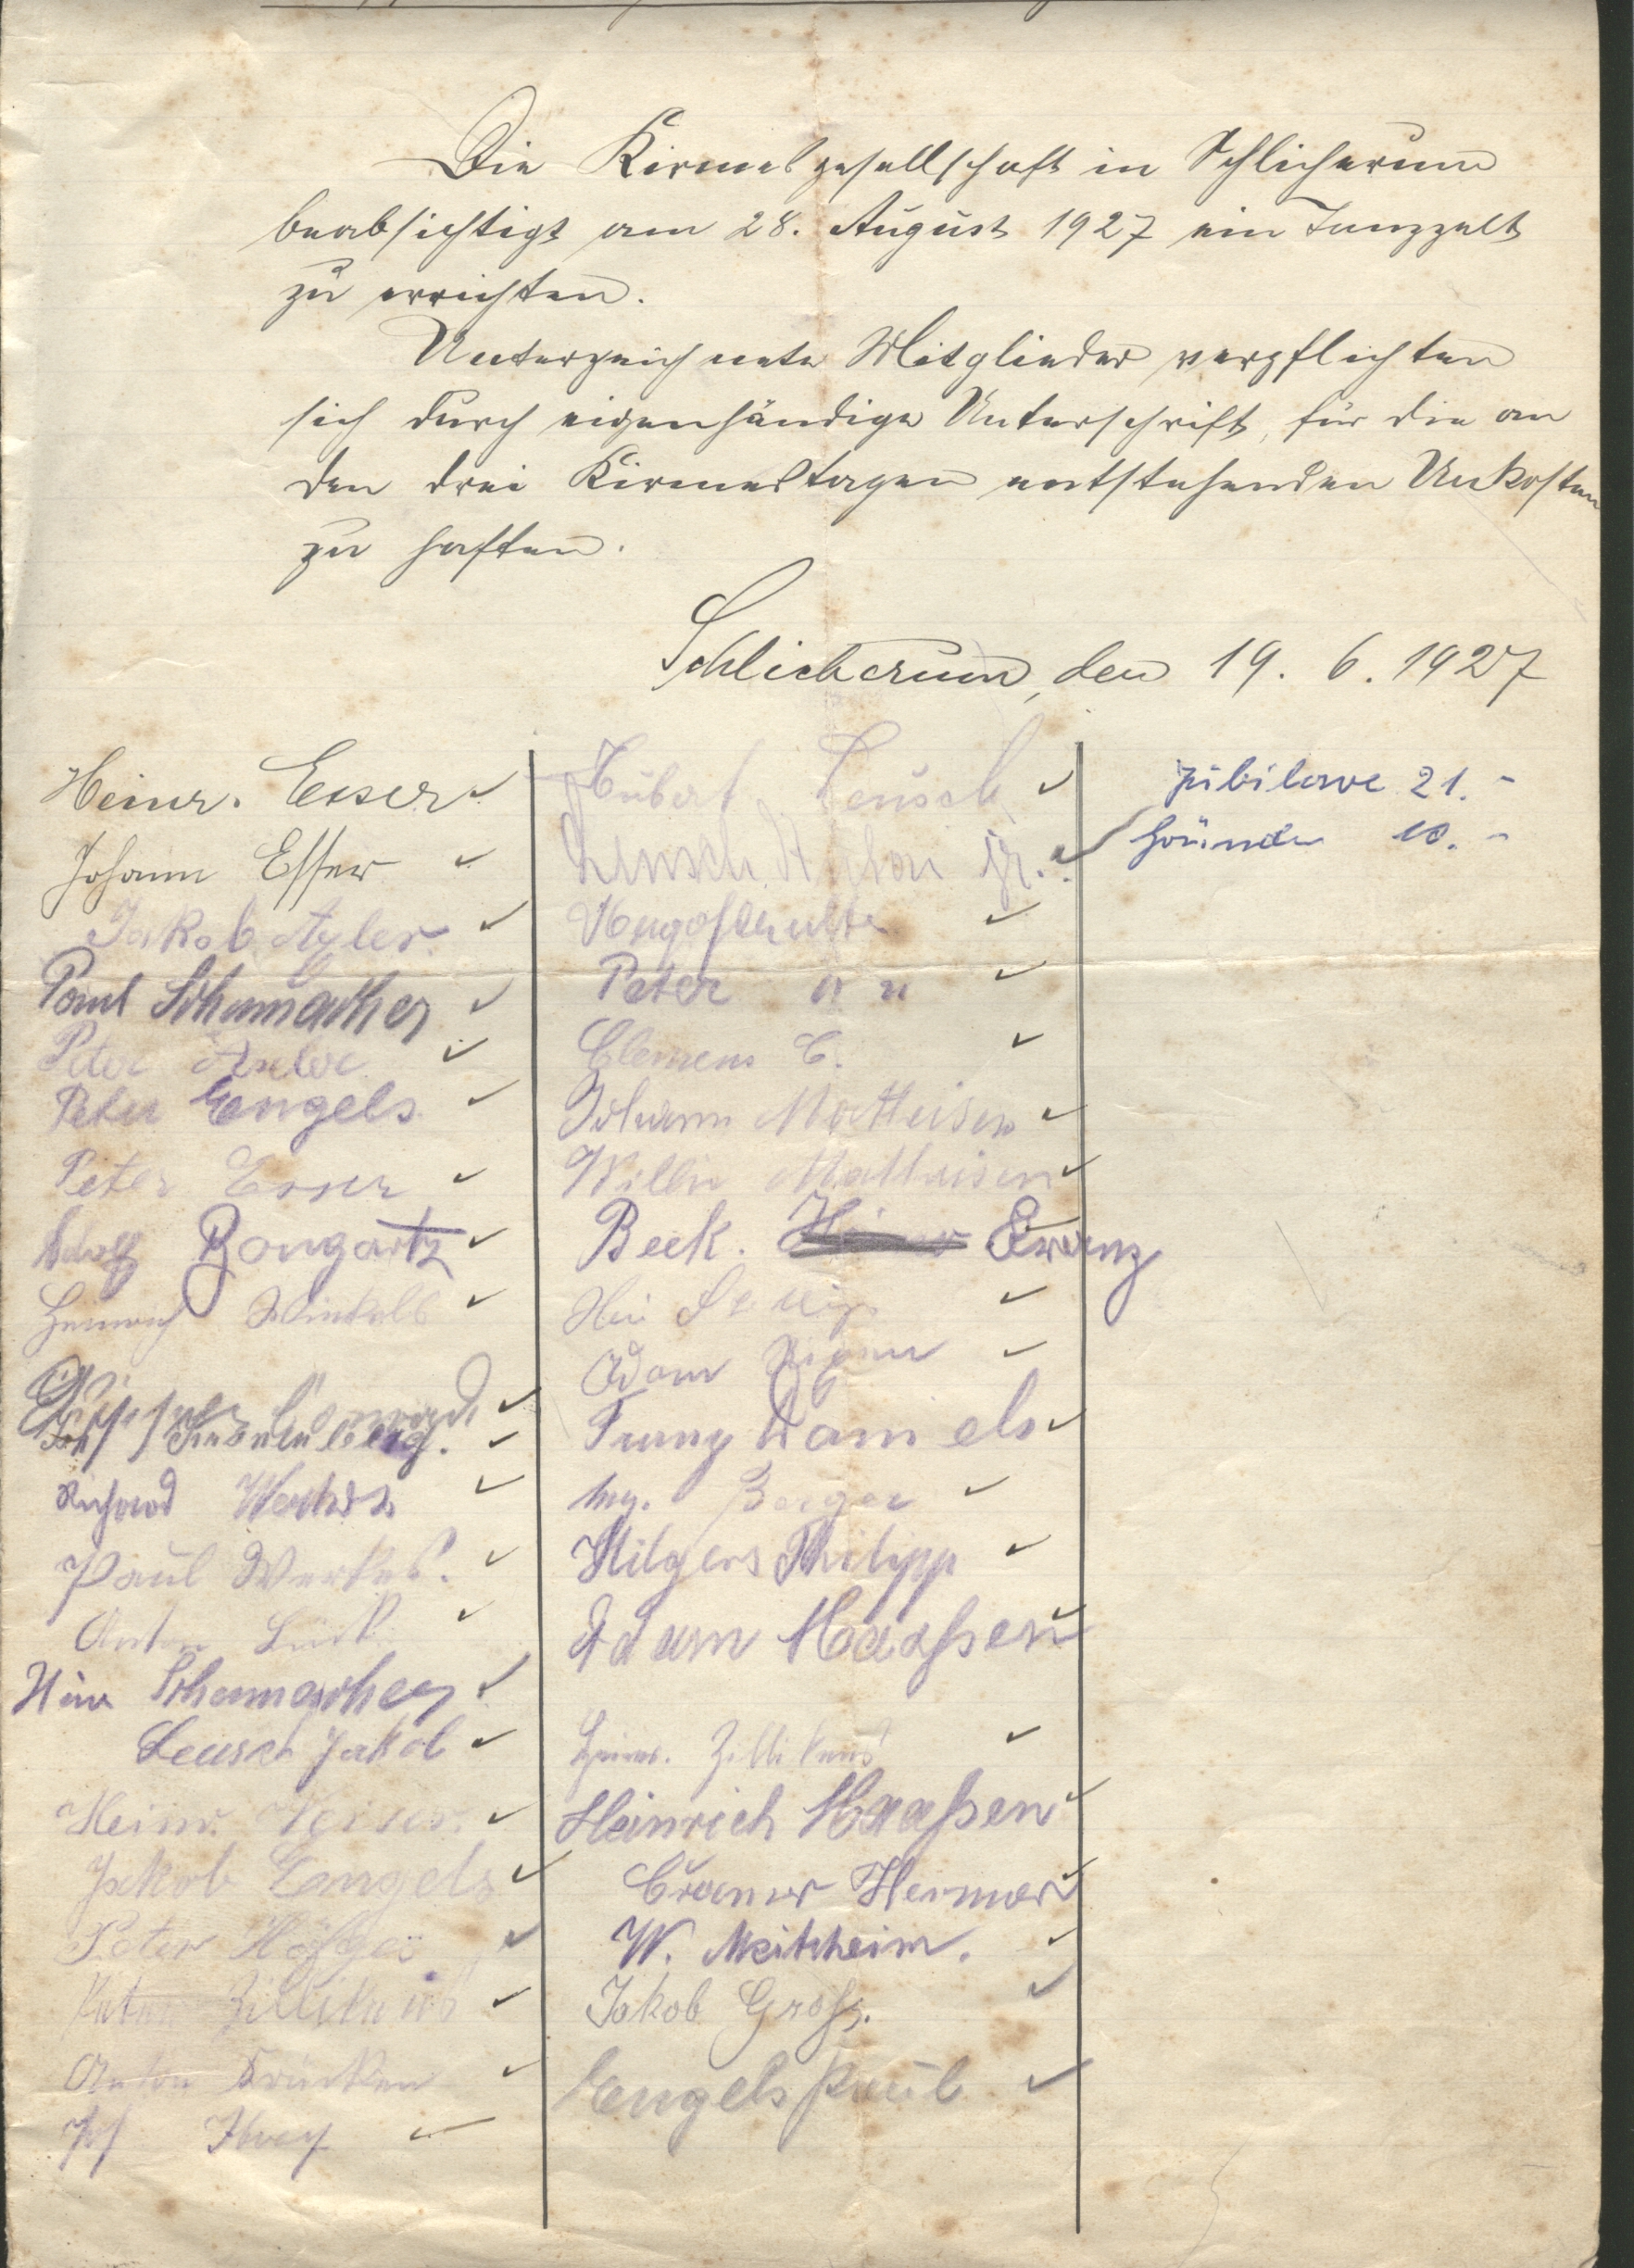 Die Kirmesgesellschaft in Schlicherum
beabsichtigt am 28. August 1927 ein Tanzzelt
zu errichten.
Unterzeichnete Mitglieder verpflichten
sich durch eigenhändige Unterschrift, für die an
den drei Kirmestagen entstehenden Unkosten
zu haften.
Schlicherum, den 19. 6. 1927
Heinr. Esser
Johann Esser
Jakob Axler
Paul Schumacher
Peter Axler
Peter Engels
Peter Esser
Adolf Bongartz
Heinrich
Conrad
Richard
Paul
Anton
Heinr Schumacher
Leusch Jakob
Heinr.
Jakob Engels
Peter
Zillikens
Anton Krücken
Hubert Leusch
Leusch Anton jr.
Hugo Schulte
Peter " "
Clemens
Johann Matheisen
Willi Matheisen
Beck. Franz
Adam
Franz Daniels
Berger
Hilgers Philipp
Adam Haaßen
Heinr. Zillikens
Heinrich Haaßen
Cramer Herman
W. Meitzheim.
Jakob Groß.
Engels Paul
Jubilare 21.-
Gründer 10.-